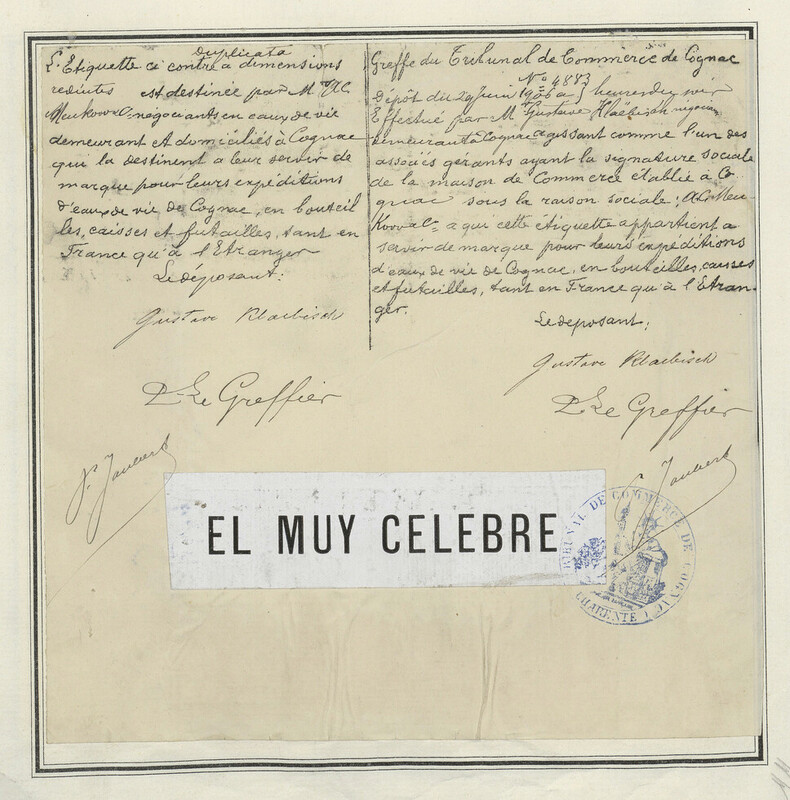 duplicata
L'Etiquette ci contre a dimensions
reduites est destinée par M
negociants en eaux de vie
demeurant et domiciliés à Cognac
qui la destinent a leur servir de
marque pour leurs expéditions
d'eaux de vie de Cognac, en bouteil
les, caisses et futailles, tant en
France qu'à l'Etranger
Le deposant:
Gustave Klaebisch
Le Greffier
Greffe du Tribunal de Commerce de Cognac
N° 4883
Dépôt du 29 Juin 1906 a heures du
Effectué par M Gustave Klaebisch négociant
demeurant a Cognac agissant comme l'un des
associés gerants ayant la signature sociale
de la maison de Commerce établie à Co
gnac sous la raison sociale:
a qui cette étiquette appartient a
servir de marque pour leurs expéditions
d'eaux de vie de Cognac, en bouteilles, caisses
et futailles, tant en France qu'à l'Etran
ger.
Le deposant:
Gustave Klaebisch
Le Greffier
EL MUY CELEBRE
TRIBUNAL DE COMMERCE DE COGNAC
CHARENTE